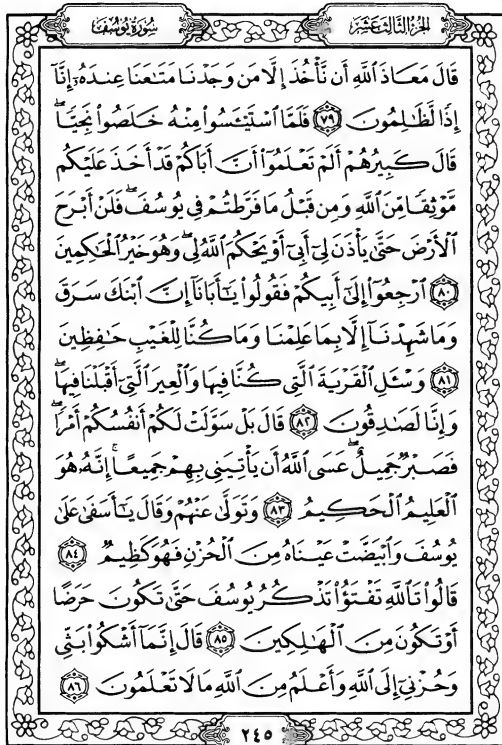 الجزء الثالث عشر
سورة يوسف
قَالَ مَعَاذَ ٱللَّهِ أَن نَّأْخُذَ إِلَّا مَن وَجَدْنَا مَتَٰعَنَا عِندَهُۥٓ إِنَّآ
إِذًا لَّظَٰلِمُونَ ۝٧٩ فَلَمَّا ٱسْتَيْـَٔسُوا۟ مِنْهُ خَلَصُوا۟ نَجِيًّا ۖ
قَالَ كَبِيرُهُمْ أَلَمْ تَعْلَمُوٓا۟ أَنَّ أَبَاكُمْ قَدْ أَخَذَ عَلَيْكُم
مَّوْثِقًا مِّنَ ٱللَّهِ وَمِن قَبْلُ مَا فَرَّطتُمْ فِى يُوسُفَ ۖ فَلَنْ أَبْرَحَ
ٱلْأَرْضَ حَتَّىٰ يَأْذَنَ لِىٓ أَبِىٓ أَوْ يَحْكُمَ ٱللَّهُ لِى ۖ وَهُوَ خَيْرُ ٱلْحَٰكِمِينَ
۝٨٠ ٱرْجِعُوٓا۟ إِلَىٰٓ أَبِيكُمْ فَقُولُوا۟ يَٰٓأَبَانَآ إِنَّ ٱبْنَكَ سَرَقَ
وَمَا شَهِدْنَآ إِلَّا بِمَا عَلِمْنَا وَمَا كُنَّا لِلْغَيْبِ حَٰفِظِينَ
۝٨١ وَسْـَٔلِ ٱلْقَرْيَةَ ٱلَّتِى كُنَّا فِيهَا وَٱلْعِيرَ ٱلَّتِىٓ أَقْبَلْنَا فِيهَا ۖ
وَإِنَّا لَصَٰدِقُونَ ۝٨٢ قَالَ بَلْ سَوَّلَتْ لَكُمْ أَنفُسُكُمْ أَمْرًا ۖ
فَصَبْرٌ جَمِيلٌ ۖ عَسَى ٱللَّهُ أَن يَأْتِيَنِى بِهِمْ جَمِيعًا ۚ إِنَّهُۥ هُوَ
ٱلْعَلِيمُ ٱلْحَكِيمُ ۝٨٣ وَتَوَلَّىٰ عَنْهُمْ وَقَالَ يَٰٓأَسَفَىٰ عَلَىٰ
يُوسُفَ وَٱبْيَضَّتْ عَيْنَاهُ مِنَ ٱلْحُزْنِ فَهُوَ كَظِيمٌ ۝٨٤
قَالُوا۟ تَٱللَّهِ تَفْتَؤُا۟ تَذْكُرُ يُوسُفَ حَتَّىٰ تَكُونَ حَرَضًا
أَوْ تَكُونَ مِنَ ٱلْهَٰلِكِينَ ۝٨٥ قَالَ إِنَّمَآ أَشْكُوا۟ بَثِّى
وَحُزْنِىٓ إِلَى ٱللَّهِ وَأَعْلَمُ مِنَ ٱللَّهِ مَا لَا تَعْلَمُونَ ۝٨٦
٢٤٥